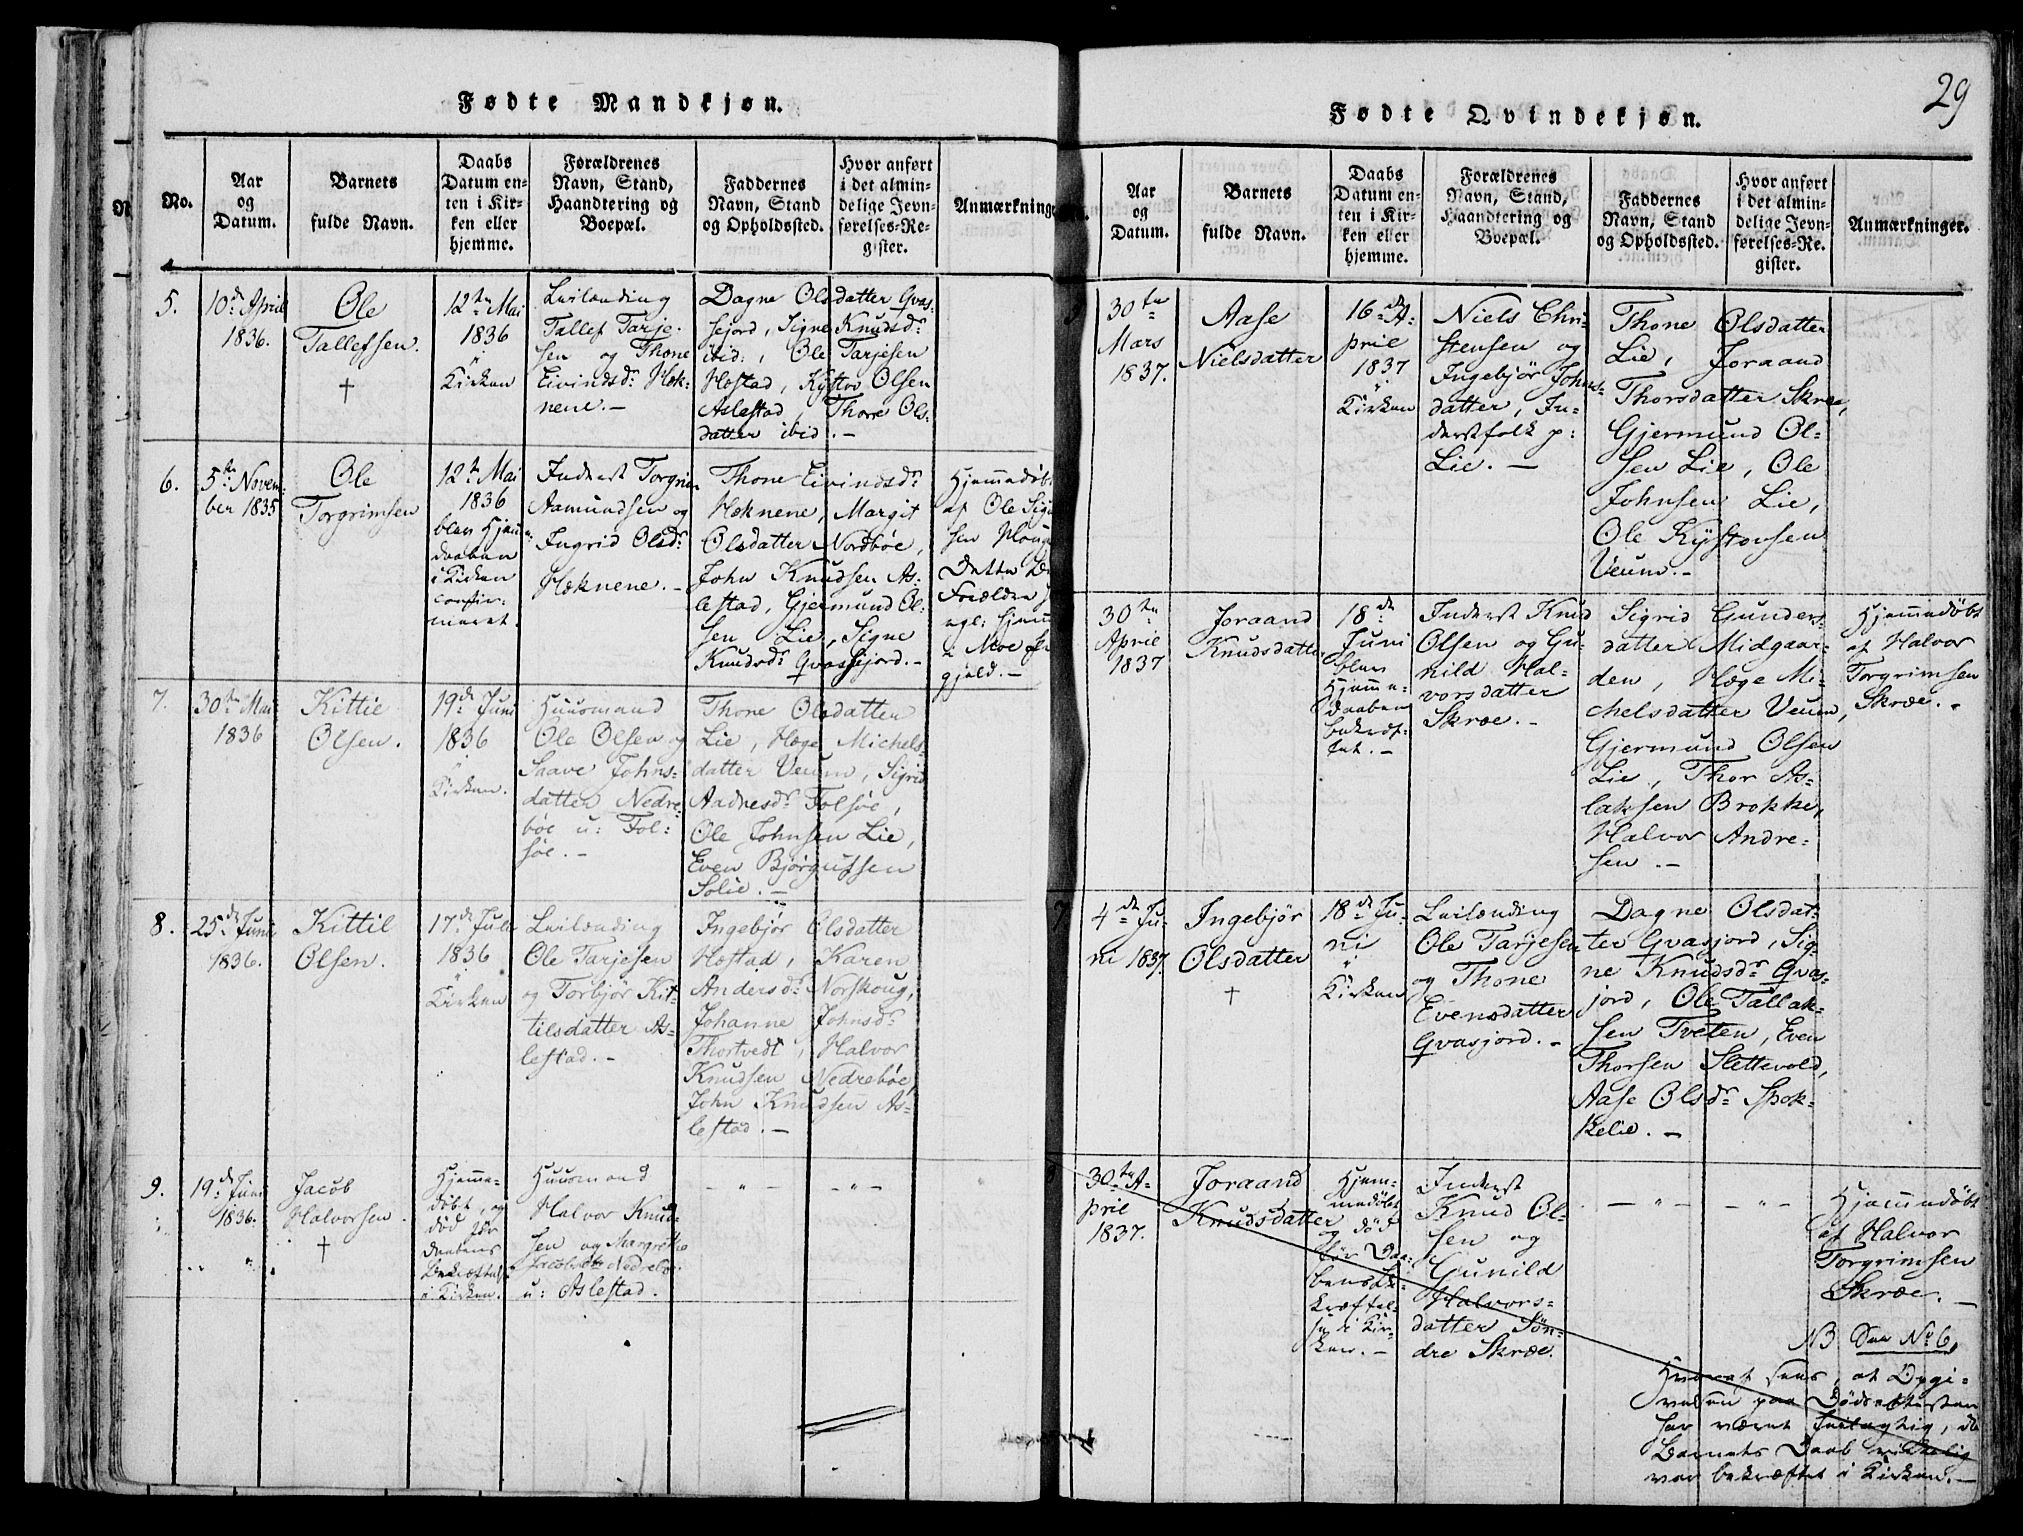 Fødte Mandkjøn.
No.
Aar
og
Datum.
Barnets
fulde Navn.
Daabs
Datum en-
ten i Kir-
ken eller
hjemme.
Forældrenes
Navn, Stand,
Haandtering og
Boepæl.
Faddernes
Navn, Stand
og Opholdssted.
Hvor anført
i det almin-
delige Jevn-
førelses-Re-
gister.
Anmærkninge
5.
10de April
1836.
Ole
Tallefsen.
†
12te Mai
1836
i
Kirken
Leilænding
Tallef Tarje-
sen og Thone
Eivindsdr Høk-
nene.-
Dagne Olsdatter Qvas-
sejord, Signe Knudsdr
ibid:, Ole Tarjesen
Høstad, Kystov Olsen
Aslestad, Thore Ols-
datter ibid.-
6.
5te Novem-
ber 1835
Ole
Torgrimsen
12te Mai
1836
blev Hjem-
daaben
i Kirken
confir-
meret.
Inderst Torgrim
Aamundsen og
Ingrid Olsdr
Høknene.-
Thone Eivindsdr
Høknene, Margit
Olsdatter Nordbøe,
John Knudsen As-
lestad, Gjermund Ol-
sen Lie, Signe
Knudsdr Qvassejord.-
Hjemmedøbt
af Ole Sig
sen Houg
Dette
Forældre
egl: hjem
i Moe
gjeld.-
7.
30te Mai
1836
Kittil
Olsen.
19de Juni
1836
i
Kirken.
Huusmand
Ole Olsen og
Saave Johns-
datter Nedre
bøe u: Fol-
søe.-
Thone Olsdatter
Lie, Høge Michels-
datter Veum, Sigrid
Aadnesdr Folsøe,
Ole Johnsen Lie,
Even Bjørgufsen
Solie.-
8.
25de Juni
1836.
Kittil
Olsen.
17de Juli
1836
i
Kirken
Leilænding
Ole Tarjesen
og Torbjør Kit-
tilsdatter As-
lestad.-
Ingebjør Olsdatter
Høstad, Karen
Andersdr Norskoug,
Johanne Johnsdr
Thortvedt, Halvor
Knudsen Nedrebøe,
John Knudsen As-
lestad.-
9.
19de Juni
1836.
Jacob
Halvorsen.
†
Hjemme-
døbt, og
død før
Daabens
Bekræftelse
i Kirken.
Huusmand
Halvor Knud-
sen og Margrethe
Jacobsdtr Nedrebø
u: Aslestad.
- " - - " -
Fødte Qvindekjøn.
29
Aar
og
Datum.
Barnets
fulde Navn.
Daabs
Datum en-
ten i Kir-
ken eller
hjemme.
Forældrenes
Navn, Stand,
Haandtering og
Boepæl.
Faddernes
Navn, Stand
og Opholdssted.
Hvor anført
i det almin-
delige Jevn-
førelses-Re-
gister.
Anmærkninger.
30te
Mars
1837.
Aase
Nielsdatter
16de A-
pril
1837
i
Kirken
Niels Chri-
stensen og
Ingebjør Johns-
datter, In-
derstfolk p:
Lie.-
Thone Olsdatter
Lie, Joraand
Thorsdatter Skræe,
Gjermund Ol-
sen Lie, Ole
Johnsen Lie,
Ole Kystovsen
Veum.-
30te
April
1837
Joraand
Knudsdatter
18de
Juni
blev
Hjemme-
daaben
bekræf-
tet.-
Inderst Knud
Olsen og Gu-
nild Hal-
vorsdatter
Skræe.-
Sigrid Gunders-
datter Midgaar-
den, Høge Mi-
chelsdatter Veum,
Gjermund Olsen
Lie, Thor As-
laksen Brokke,
Halvor Andre-
sen.-
Hjemmedøbt
af Halvor
Torgrimsen
Skræe.-
7
4de Ju-
ni 1837.
Ingebjør
Olsdatter
†
18de Ju-
ni
i
Kirken
Leilænding
Ole Tarjesen
og Thone
Evensdatter
Qvasjord.-
Dagne Olsdat-
ter Qvasjord, Sig-
ne Knudsdr Qvas-
jord, Ole Tallak-
sen Tveten, Even
Thorsen Slettevold,
Aase Olsdr Skok-
kelie.-
30te A-
pril
1837.
Joraand
Knudsdatter
Hjem-
medøbt
og død
før Daa-
bens Be-
kræftel-
se i Kir-
ken.-
Inderst
Knud Ol-
sen og
Gunild
Halvors-
datter Søn-
dre Skræe.
- " - - " -
Hjemmedøbt
af Halvor
Torgrimsen
Skræe.-
NB See No 6,
Hvoraf sees, at Opgi-
velsen paa Dødsattesten
har været feilagtig, da
Barnets Daab virkelig
var bekræftet i Kirken.-